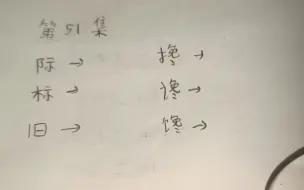 第51集
际→ 搀→
标→ 谗→
旧→ 馋→